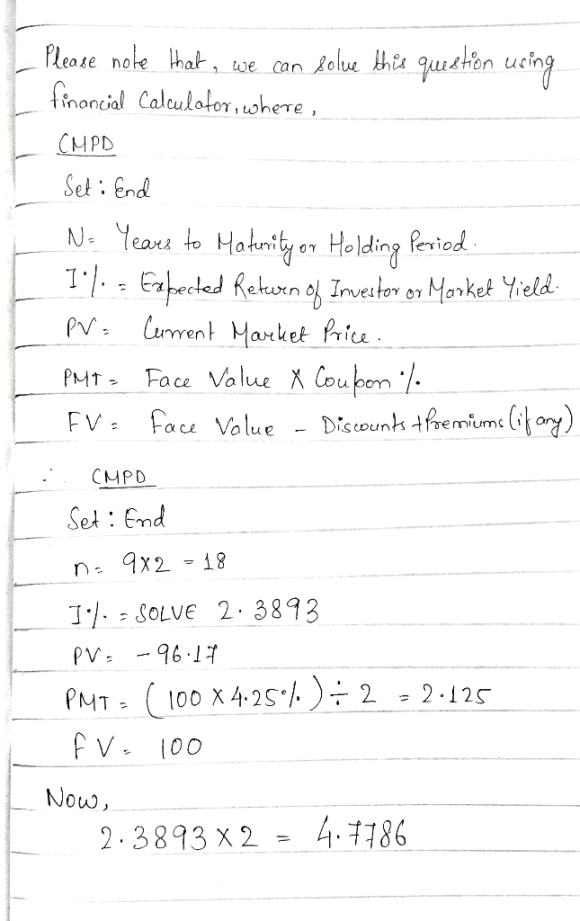 Please note that, we can solve this question using
financial Calculator, where,
CMPD
Set : End
N = Years to Maturity or Holding Period.
I%. = Expected Return of Investor or Market Yield.
PV = Current Market Price.
PMT = Face Value X Coupon %.
FV = Face Value - Discounts + Premiums (if any)
∴ CMPD
Set : End
n = 9x2 = 18
I%. = SOLVE 2.3893
PV = -96.17
PMT = (100 X 4.25%) ÷ 2 = 2.125
FV = 100
Now,
2.3893 x 2 = 4.7786